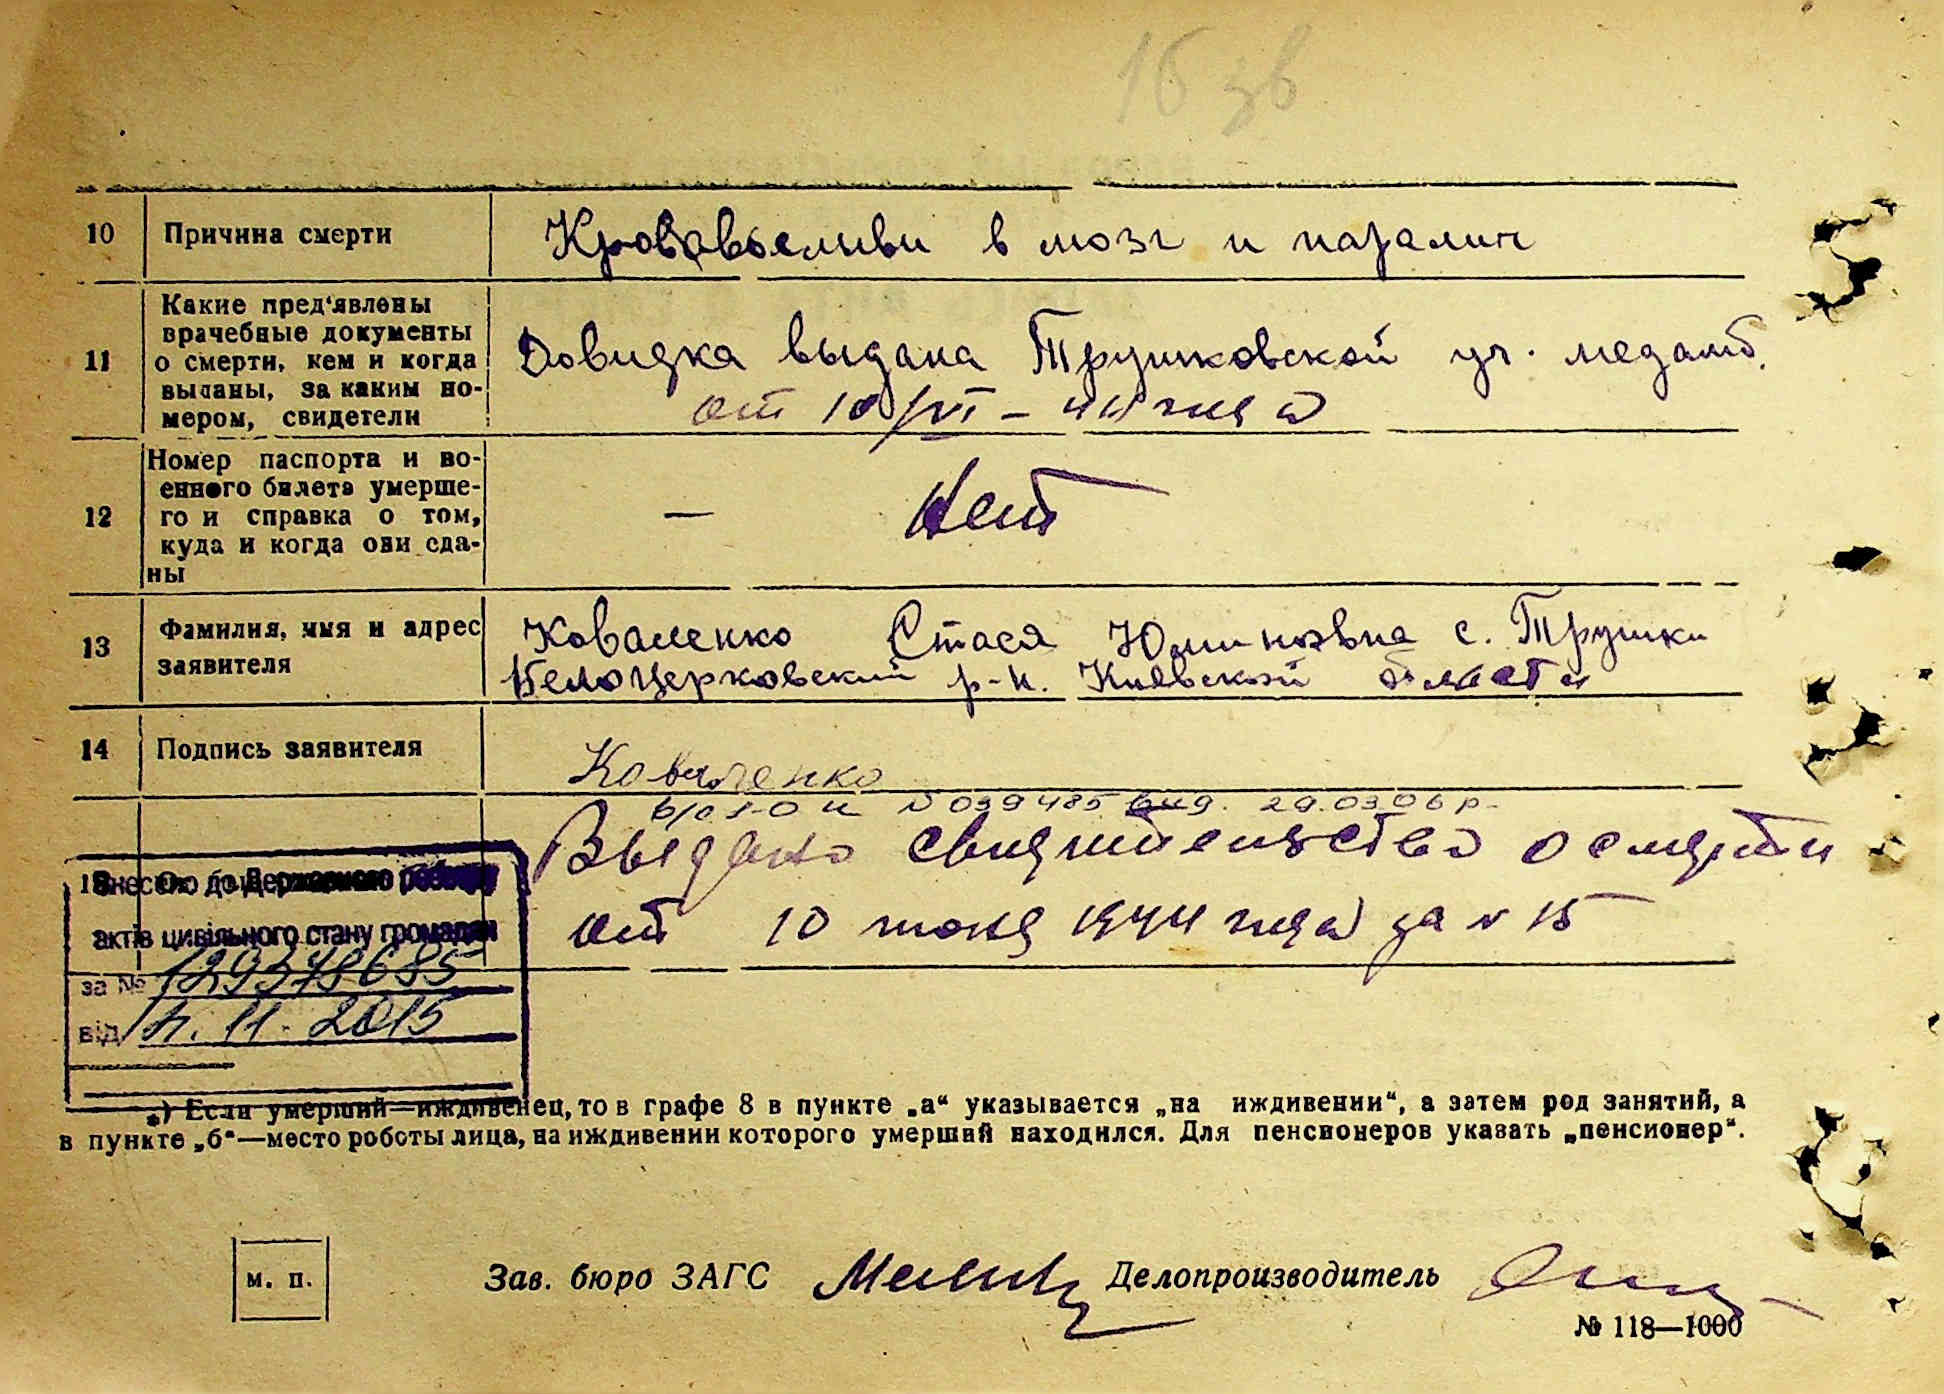 16 зв
10 Причина смерти Крововыливи в мозг и паралич
11 Какие пред‘явлены врачебные документы о смерти, кем и когда выданы, за каким но-
мером, свидетели
Довидка выдана Трушковской уч. медамб.
от 10/VI – 44 года
12 Номер паспорта и во-
енного билета умерше-
го и справка о том,
куда и когда они сда-
ны
— Нет
13 Фамилия, имя и адрес
заявителя
Коваленко Стася с. Трушки
Белоцерковский р-н. Киевской области
14 Подпись заявителя Коваленко
N 039485 вид. 29.03.06 р.
Выдано свидительство о смерти
от 10 июня 1944 года за N 15
Внесено до Державного реєстру
актів цивільного стану громадян
за № 129378685
від 11. 2015
*) Если умерший—иждивенец, то в графе 8 в пункте „а“ указывается „на иждивении“, а затем род занятий, а
в пункте „б“—место роботы лица, на иждивении которого умерший находился. Для пенсионеров указать „пенсионер“.
м. п. Зав. бюро ЗАГС Делопроизводитель
№ 118—1000